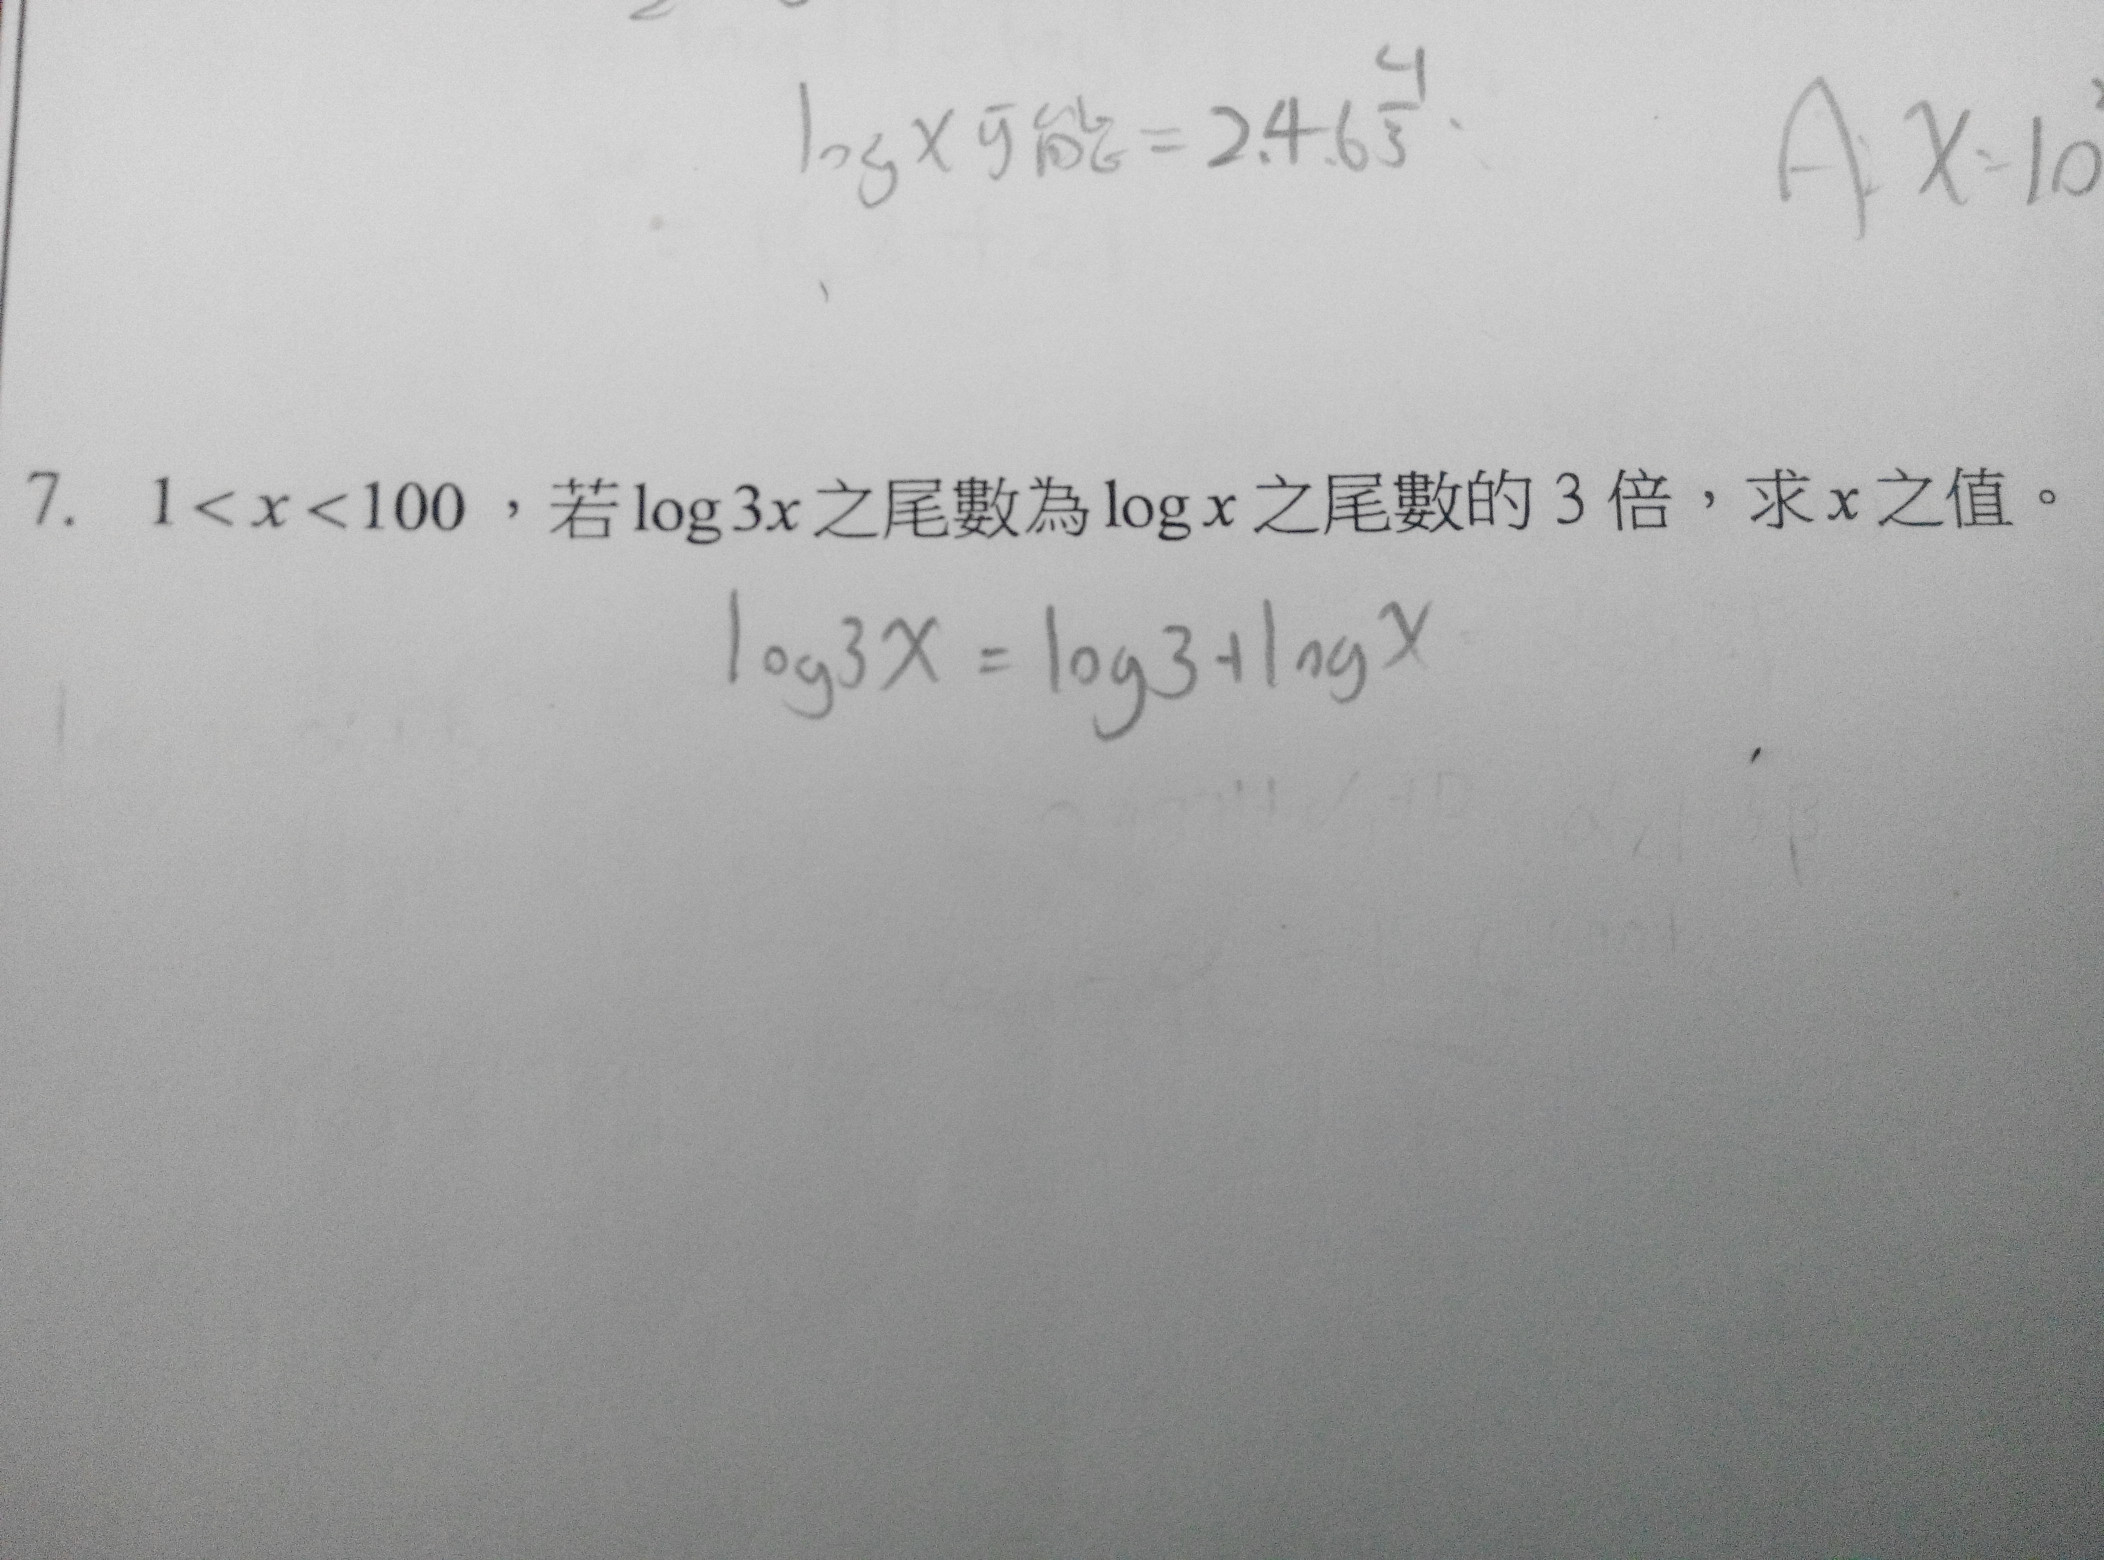 log x 可能 = 2.4.6 4/3
A: x = 10
7. 1 < x < 100，若 log 3x 之尾數為 log x 之尾數的 3 倍，求 x 之值。
log3x = log3 + log x